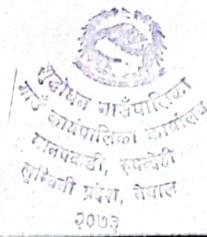 शुद्धोधन गाउँपालिका
गाउँ कार्यपालिका कार्यालय
रुपन्देही
लुम्बिनी प्रदेश, नेपाल
२०७३